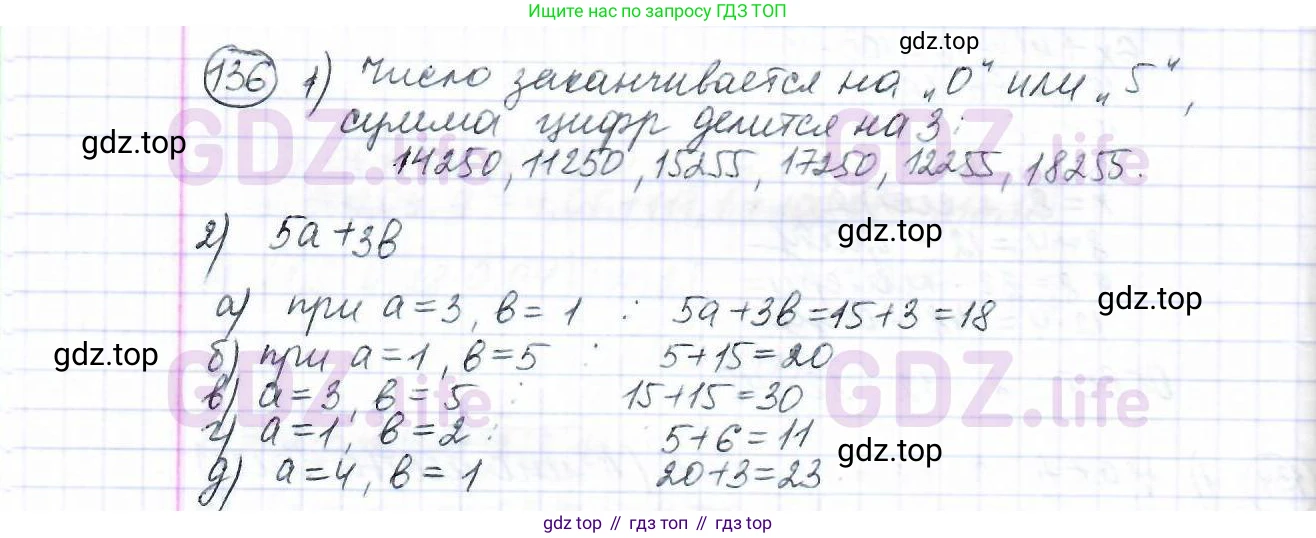 Ищите нас по запросу ГДЗ ТОП
gdz.top
136 1) Число заканчивается на „0“ или „5“,
сумма цифр делится на 3:
gdz.top
GDZ.life GDZ.life
14250, 11250, 15255, 17250, 12255, 18255.
2) 5a+3b
gdz.top
а) при a=3, b=1 : 5a+3b=15+3=18
gdz.top
б) при a=1, b=5 : 5+15=20
gdz.top
в) a=3, b=5 : 15+15=30
GDZ.life GDZ.life
г) a=1, b=2 : 5+6=11
gdz.top
д) a=4, b=1 20+3=23
gdz.top // гдз топ // gdz.top